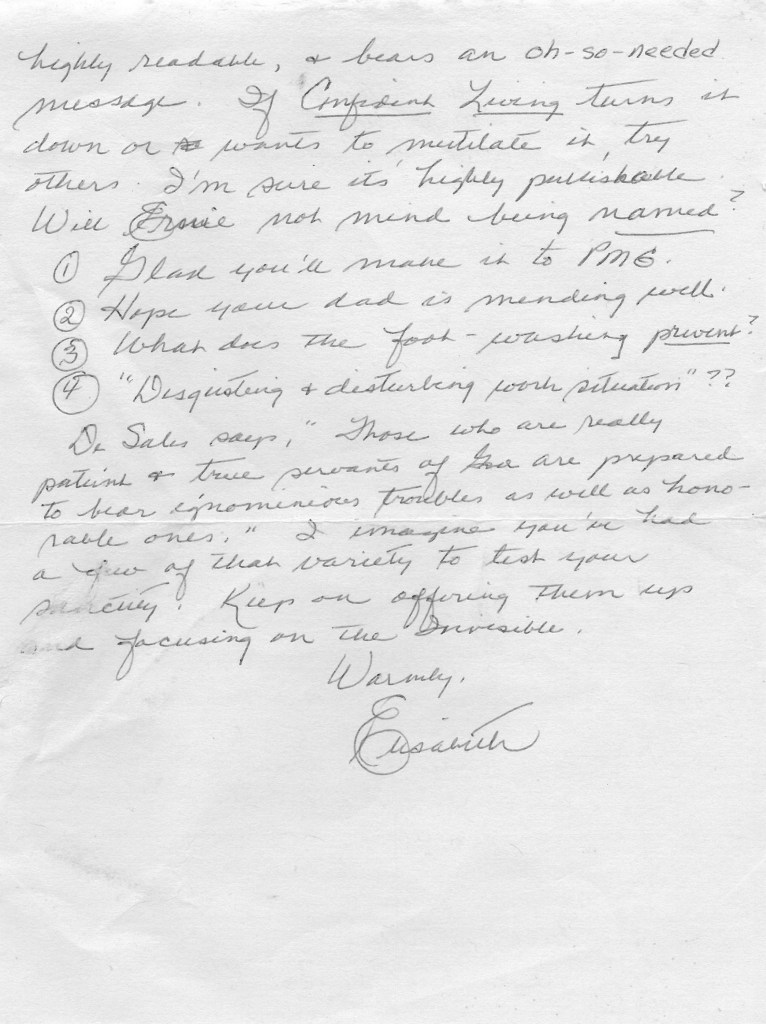 highly readable, & bears an oh-so-needed
message. If Confident Living turns it
down or wants to mutilate it, try
others. I'm sure it's highly publishable.
Will Ernie not mind being named?
① Glad you'll make it to PMG.
② Hope your dad is mending well.
③ What does the foot-washing prevent?
④ "Disgusting & disturbing work situation"??
De Sales says, "Those who are really
patient & true servants of God are prepared
to bear ignominious troubles as well as hono-
rable ones." I imagine you've had
a few of that variety to test your
sanctity. Keep on offering them up
and focusing on the Invisible.
Warmly,
Elisabeth